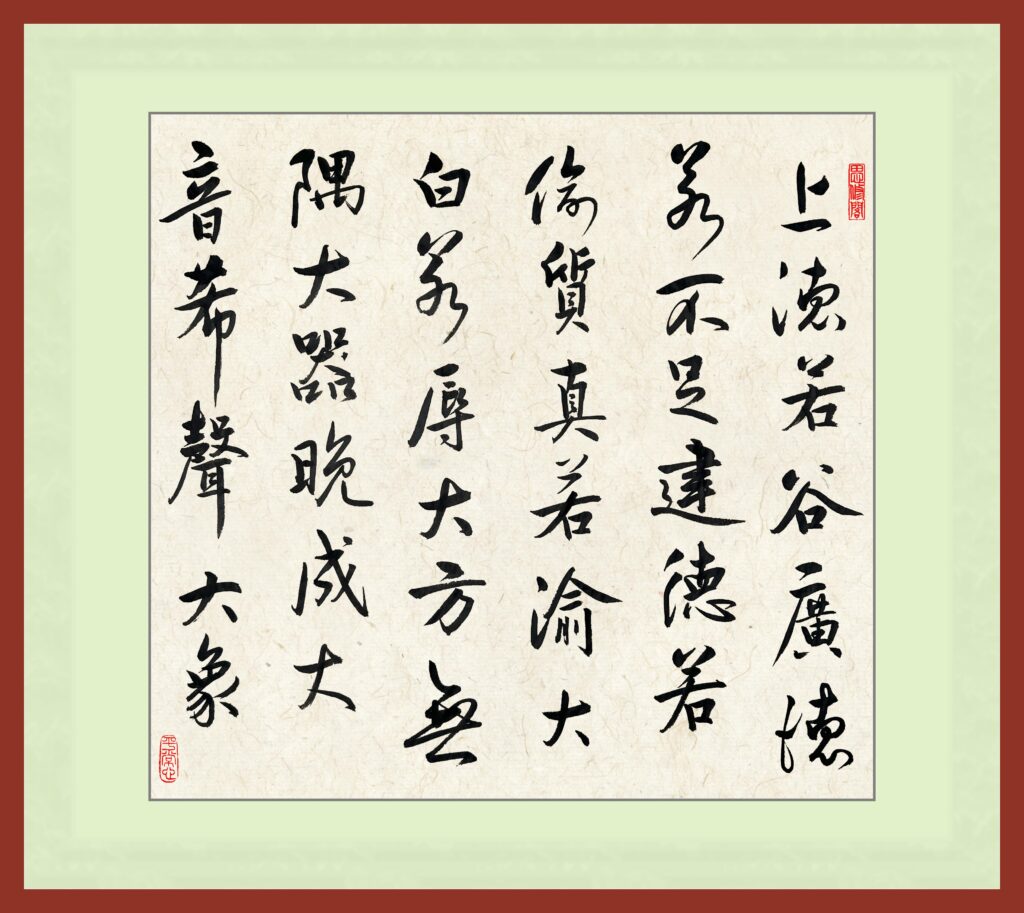 思修閣
上德若谷廣德
若不足建德若
偷質真若渝大
白若辱大方無
隅大器晚成大
音希聲大象
平常心